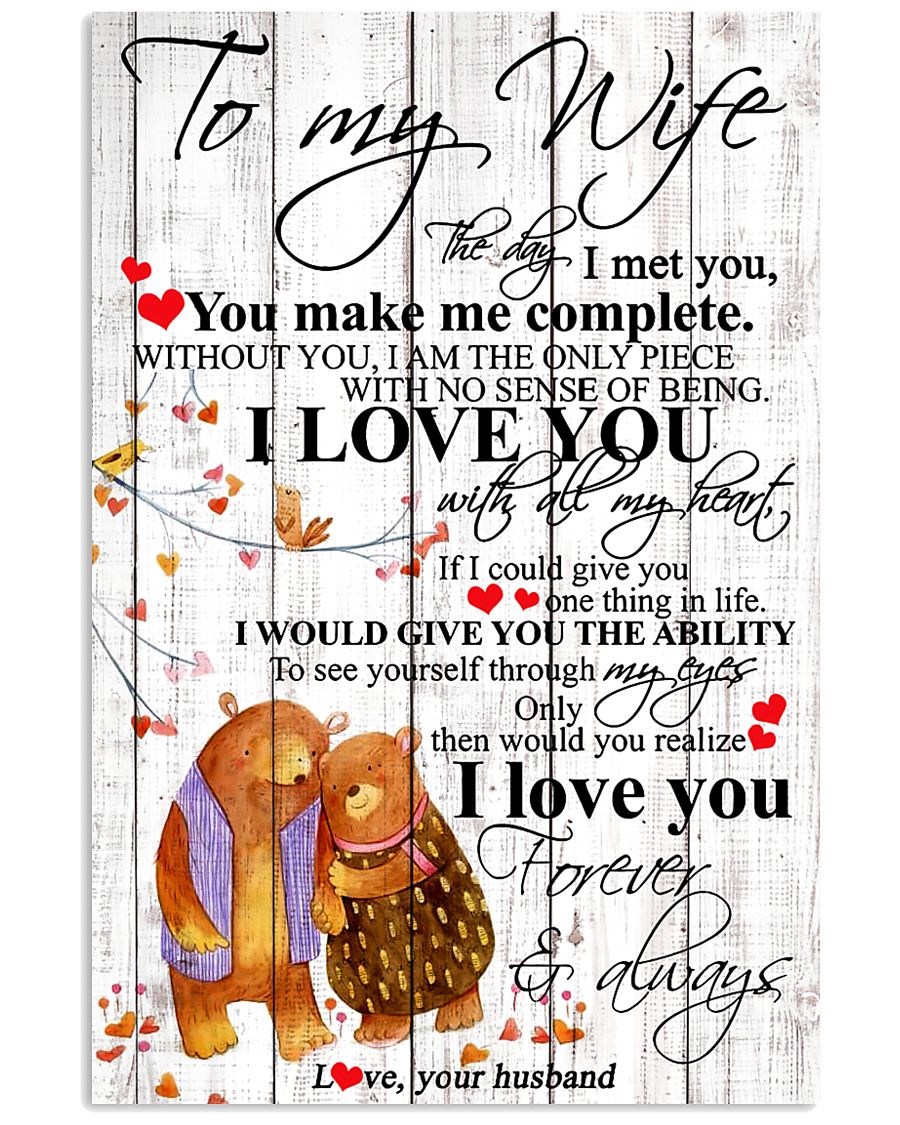 To my Wife
The day I met you,
You make me complete.
WITHOUT YOU, I AM THE ONLY PIECE
WITH NO SENSE OF BEING.
I LOVE YOU
with all my heart,
If I could give you
one thing in life.
I WOULD GIVE YOU THE ABILITY
To see yourself through my eyes
Only
then would you realize
I love you
Forever
& always
Love, your husband